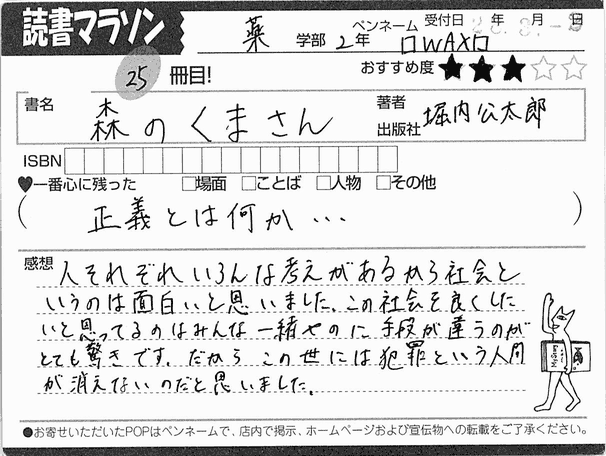 読書マラソン
薬 学部 2年 ペンネーム □WAX□ 受付日 年 月 日
25 冊目! おすすめ度 ★★★☆☆
書名 森のくまさん 著者 出版社 堀内公太郎
ISBN
♥一番心に残った □場面 □ことば □人物 □その他
(正義とは何か…)
感想 人それぞれいろんな考えがあるから社会と
いうのは面白いと思いました。この社会を良くした
いと思ってるのはみんな一緒やのに手段が違うのが
とても驚きです。だからこの世には犯罪という人間
が消えないのだと思いました。
●お寄せいただいたPOPはペンネームで、店内で掲示、ホームページおよび宣伝物への転載をご了承ください。